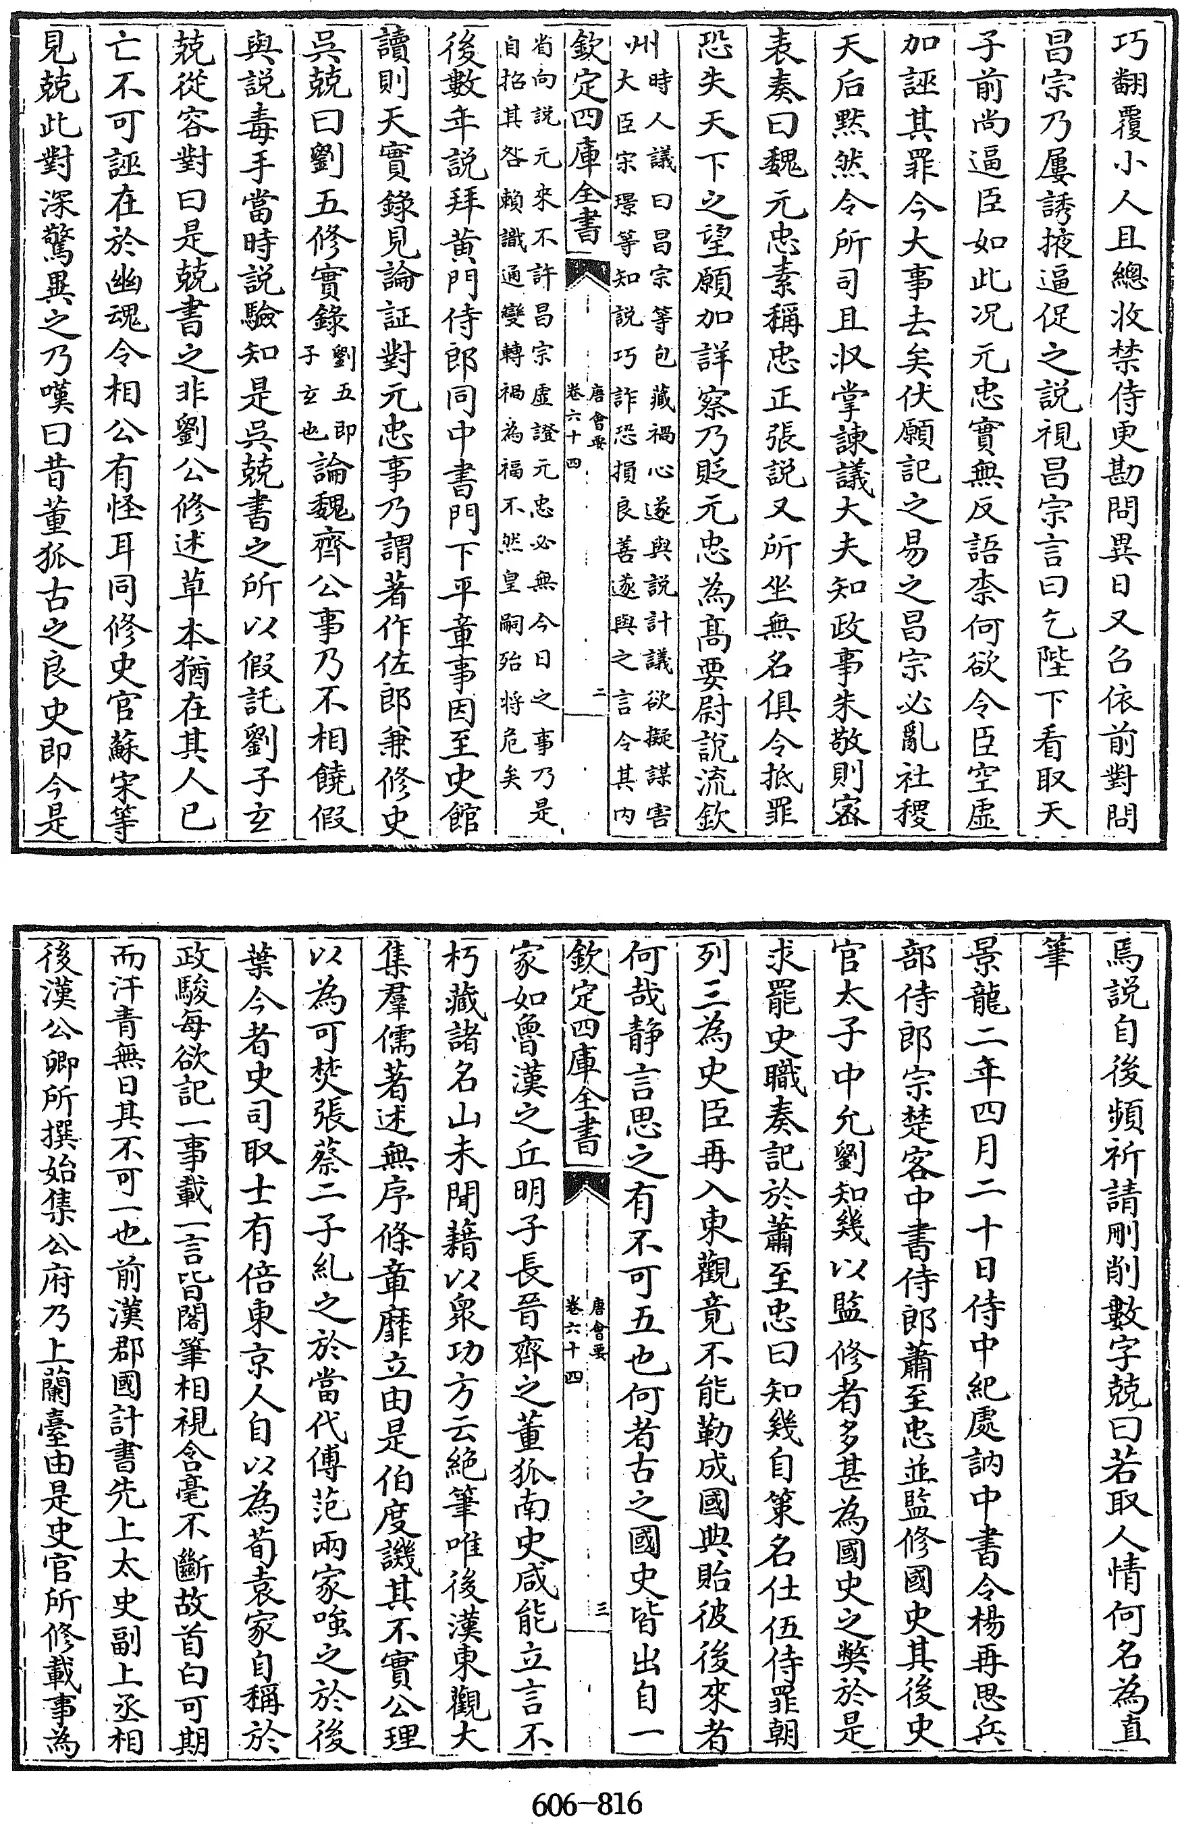 巧翻覆小人且總收禁侍更勘問異日又召依前對問
昌宗乃屢誘掖逼促之説視昌宗言曰乞陛下看取天
子前尚逼臣如此况元忠實無反語柰何欲令臣空虛
加誣其罪今大事去矣伏願記之易之昌宗必亂社稷
天后黙然令所司且収掌諫議大夫知政事朱敬則宻
表奏曰魏元忠素稱忠正張説又所坐無名俱令抵罪
恐失天下之望願加詳察乃貶元忠為髙要尉説流欽
州時人議曰昌宗等包藏禍心遂與説計議欲擬謀害
大臣宋璟等知説巧詐恐損良善遂與之言令其内
欽定四庫全書
唐會要
卷六十四
二
省向説元來不許昌宗虛證元忠必無今日之事乃是
自招其咎賴識通變轉禍為福不然皇嗣殆将危矣
後數年説拜黄門侍郎同中書門下平章事因至史館
讀則天實錄見論証對元忠事乃謂著作佐郎兼修史
吳兢曰劉五修實錄劉五即子玄也論魏齊公事乃不相饒假
與説毒手當時説驗知是吳兢書之所以假託劉子玄
兢從容對曰是兢書之非劉公修述草本猶在其人已
亡不可誣在於幽魂令相公有怪耳同修史官蘇宋等
見兢此對深驚異之乃嘆曰昔董狐古之良史即今是
焉説自後頻祈請刪削數字兢曰若取人情何名為直
筆
景龍二年四月二十日侍中紀處訥中書令楊再思兵
部侍郎宗楚客中書侍郎蕭至忠並監修國史其後史
官太子中允劉知幾以監修者多甚為國史之獘於是
求罷史職奏記於蕭至忠曰知幾自策名仕伍侍罪朝
列三為史臣再入東觀竟不能勒成國典貽彼後來者
何哉靜言思之有不可五也何者古之國史皆出自一
欽定四庫全書
唐會要
卷六十四
三
家如魯漢之丘明子長晉齊之董狐南史咸能立言不
朽藏諸名山未聞藉以衆功方云絶筆唯後漢東觀大
集羣儒著述無序條章靡立由是伯度譏其不實公理
以為可焚張蔡二子糺之於當代傅范兩家嗤之於後
葉今者史司取士有倍東京人自以為荀袁家自稱於
政駿每欲記一事載一言皆閣筆相視含毫不斷故首白可期
而汗青無日其不可一也前漢郡國計書先上太史副上丞相
後漢公卿所撰始集公府乃上蘭臺由是史官所修載事為
606-816